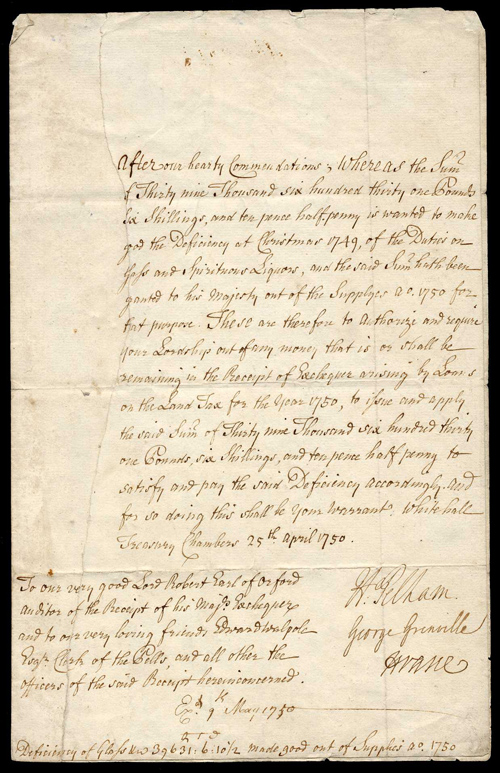 After our hearty Commendations; Whereas the Sum̅
of Thirty nine Thousand six hundred thirty one Pounds
six Shillings, and ten pence half penny is wanted to make
good the Deficiency at Christmas 1749, of the Duties on
Glass and Spirituous Liquors, and the said Sum̅ hath been
granted to his Majesty out of the Supplyes ao. 1750 for
that purpose. These are therefore to Authorize and require
Your Lordship out of any money that is or shall be
remaining in the Receipt of Exchequer arising by Loans
on the Land Tax for the Year 1750, to issue and apply
the said Sum̅ of Thirty nine Thousand six hundred thirty
one Pounds, six Shillings, and ten pence half penny to
satisfy and pay the said Deficiency accordingly. And
for so doing this shall be Your Warrant. Whitehall
Treasury Chambers 25th April 1750.
H Pelham.
George Grenville
H Vane
To our very good Lord Robert Earl of Orford
Auditor of the Receipt of his Maj's Exchequer
and to our very loving friends Edward Walpole
Esqr. Clerk of the Pells, and all other the
officers of the said Receipt herein concerned.
Exd. 9th May 1750
Deficiency of Glass &c 39631:6:10½ made good out of Supplies ao. 1750